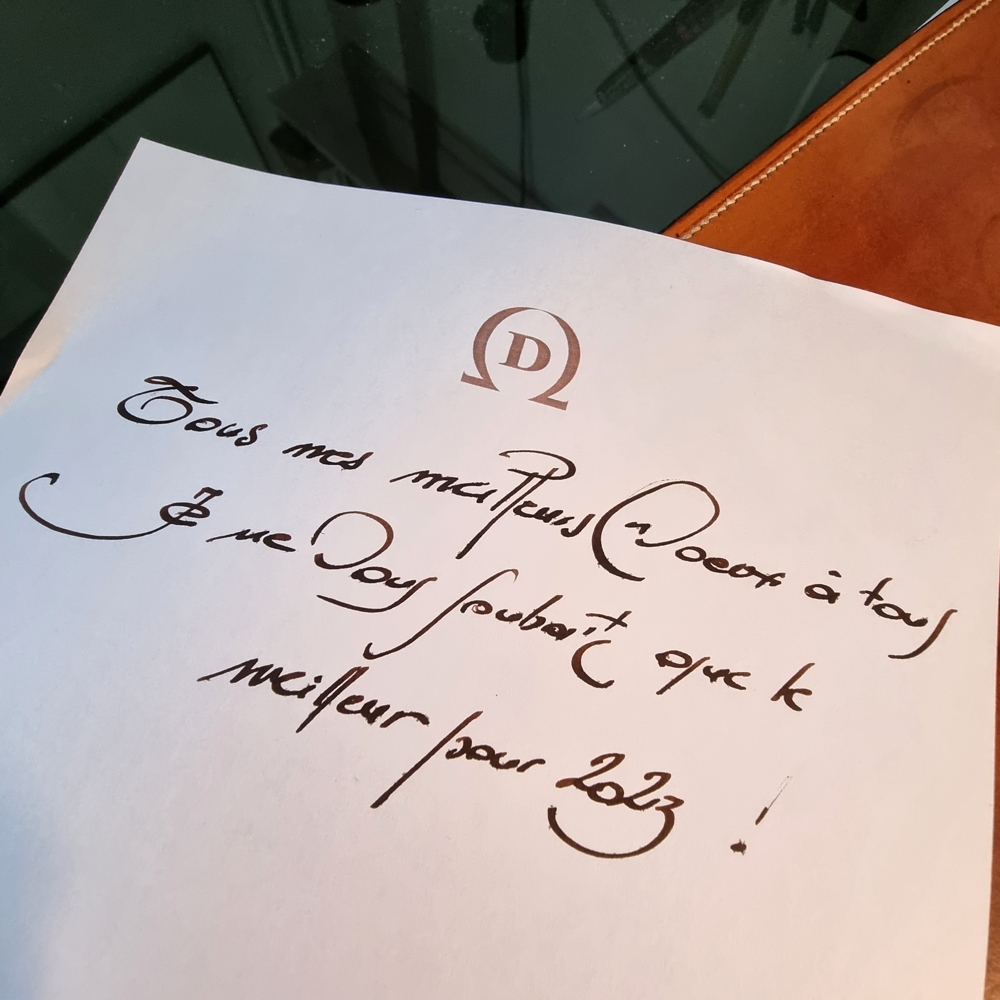 Ω D
Tous mes meilleurs Voeux à tous
Je ne Vous souhait que le
meilleur pour 2023 !